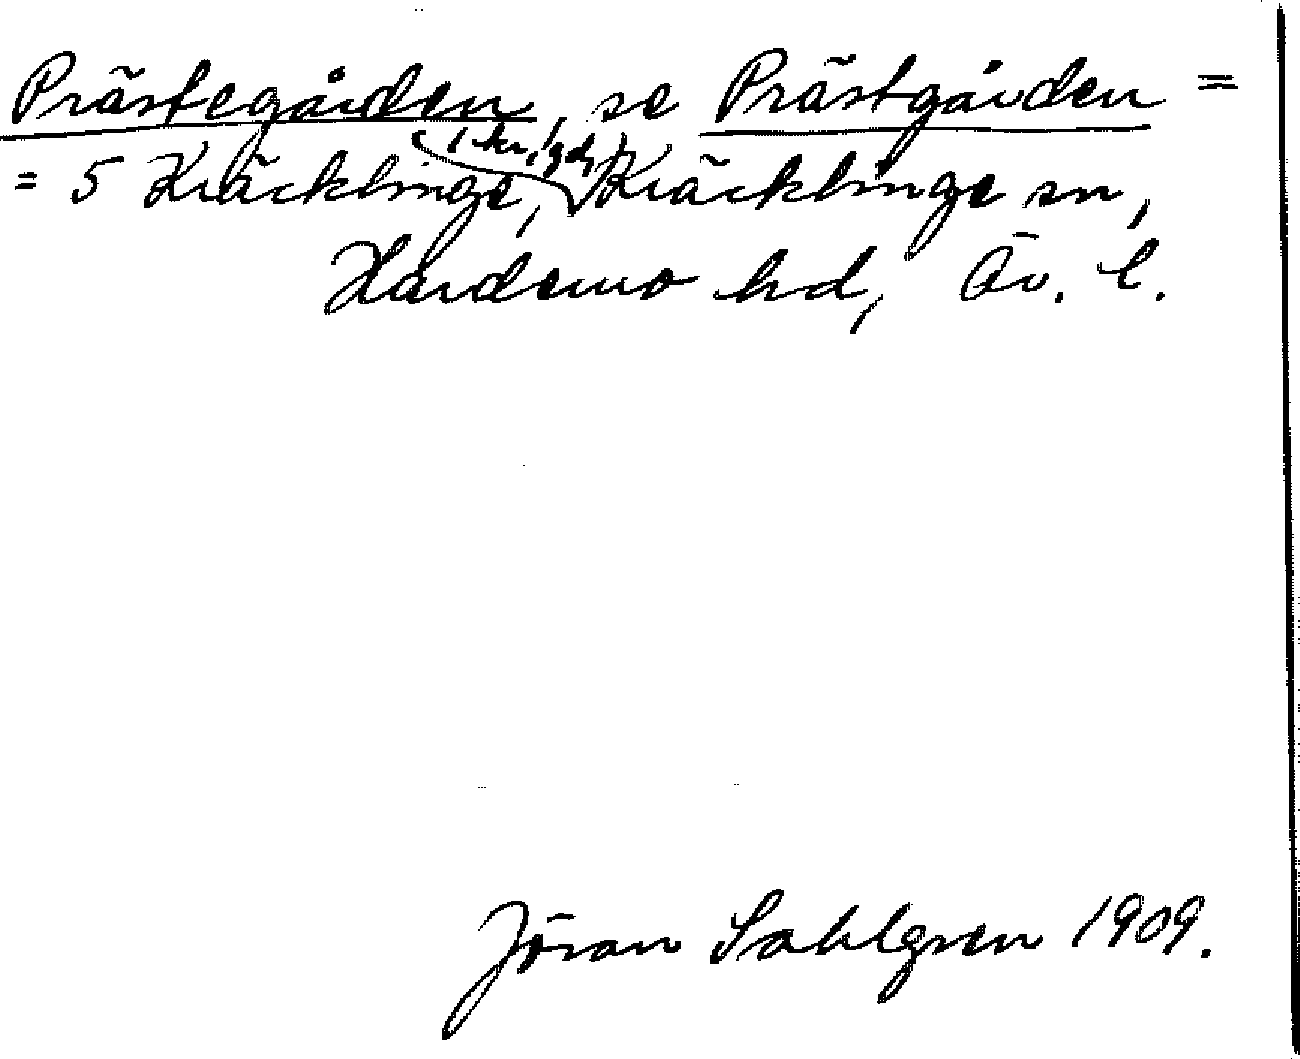 Prästegården, se Prästgården =
= 5 Kräcklinge, (1 kr. gd,) Kräcklinge sn,
Hardemo hd, Ör. l.
Jöran Sahlgren 1909.